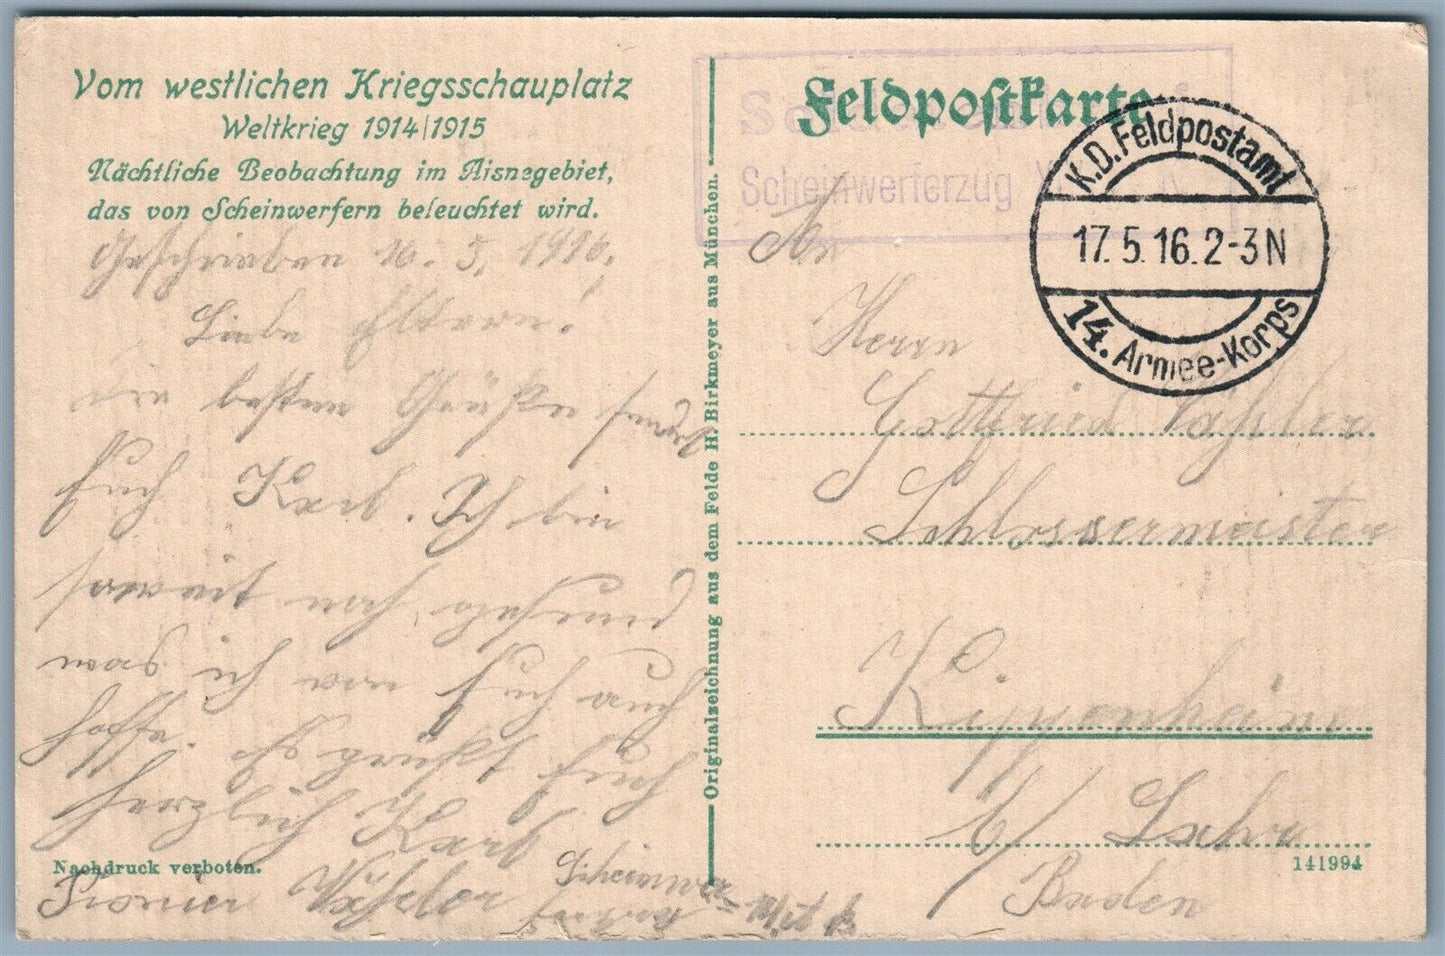 Vom westlichen Kriegsschauplatz
Weltkrieg 1914/1915
Nächtliche Beobachtung im Aisnegebiet,
das von Scheinwerfern beleuchtet wird.
Geschrieben 16. 5. 1916.
Liebe Eltern!
Die besten Grüße sendet
Euch Karl. Ich bin
soweit noch gesund
was ich von Euch auch
hoffe. Es grüßt Euch
herzlich Karl
Nachdruck verboten.
Pionier
Originalzeichnung aus dem Felde H. Birkmeyer aus München.
Feldpostkarte
Scheinwerferzug
K.D. Feldpostamt
17.5.16.2-3N
14. Armee-Korps
An
Herrn
Gottfried
Schlossermeister
Kippenheim
b/ Lahr
Baden
141994